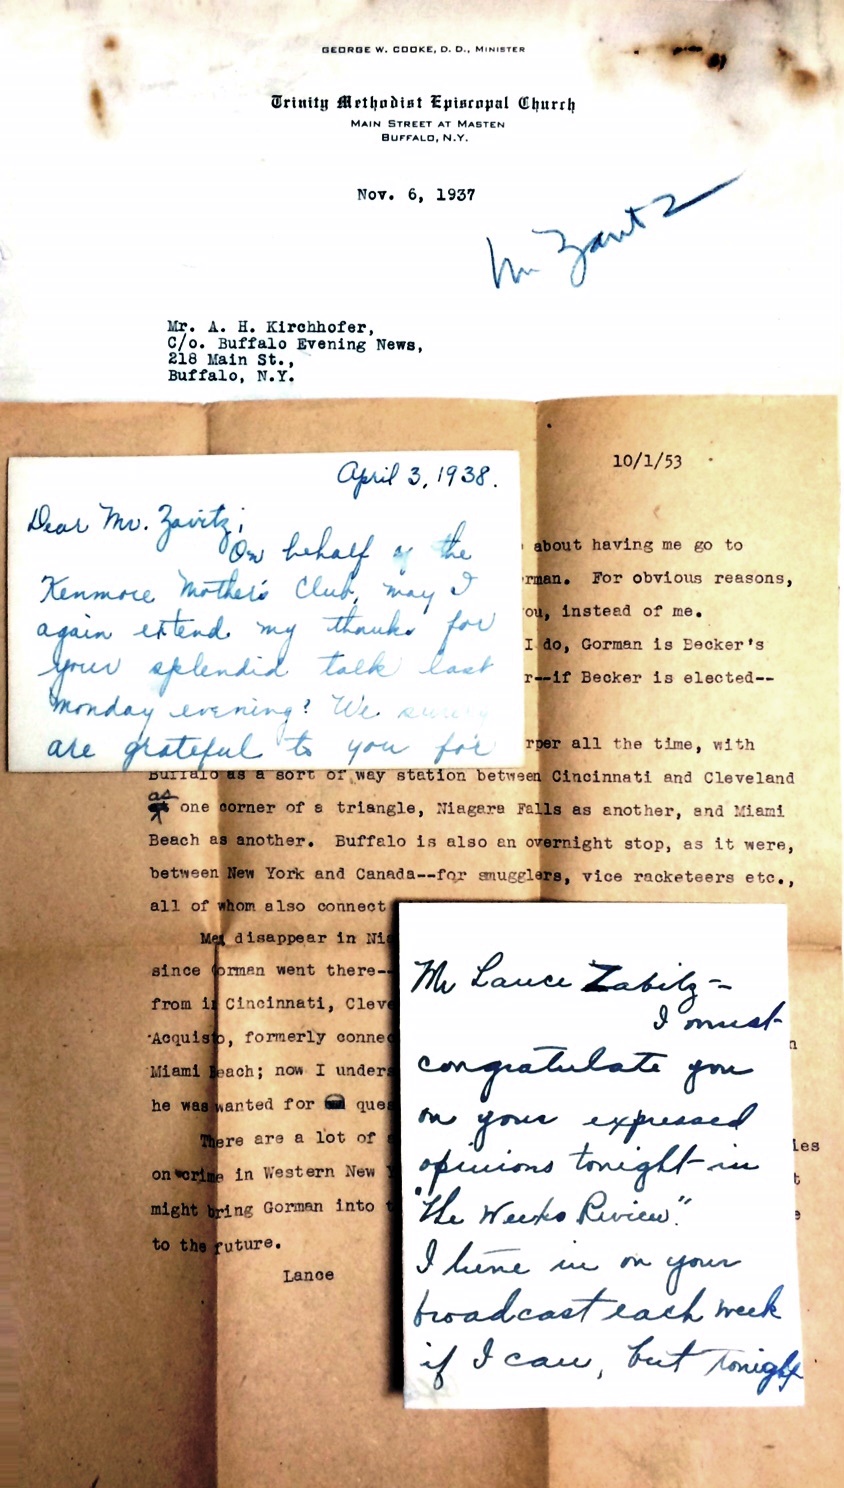 GEORGE W. COOKE, D. D., MINISTER
Trinity Methodist Episcopal Church
MAIN STREET AT MASTEN
BUFFALO, N.Y.
Nov. 6, 1937
Mr. A. H. Kirchhofer,
C/o. Buffalo Evening News,
218 Main St.,
Buffalo, N.Y.
April 3, 1938.
Dear Mr. Zavitz;
On behalf of the
Kenmore Mother's Club, may I
again extend my thanks for
your splendid talk last
Monday evening? We surely
are grateful to you for
10/1/53
about having me go to
rman. For obvious reasons,
ou, instead of me.
I do, Gorman is Becker's
r--if Becker is elected--
rper all the time, with
Buffalo as a sort of way station between Cincinnati and Cleveland
as one corner of a triangle, Niagara Falls as another, and Miami
Beach as another. Buffalo is also an overnight stop, as it were,
between New York and Canada--for smugglers, vice racketeers etc.,
all of whom also connect
Men disappear in Nia
since Gorman went there--
from in Cincinnati, Cleve
Acquisto, formerly connec
Miami Beach; now I unders
he was wanted for ques
There are a lot of
on crime in Western New
might bring Gorman into t
to the future.
Lance
n
ies
t
e
Mr Lance Zabitz--
I must
congratulate you
on your expressed
opinions tonight in
"The Weeks Review."
I tune in on your
broadcast each week
if I can, but tonight